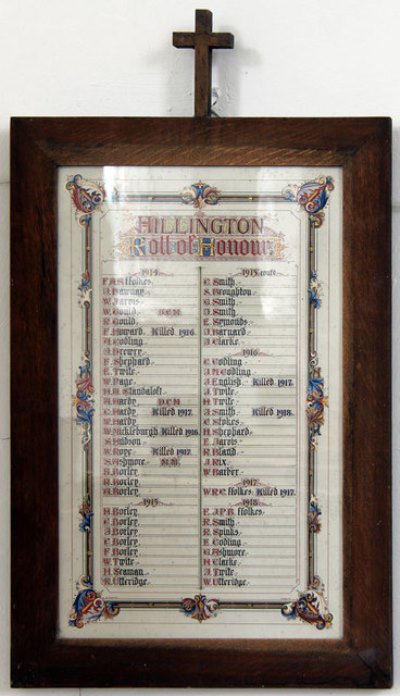 HILLINGTON
Roll of Honour
1914
F.A.S. ffolkes
Dawnay
W. Jarvis
W. Gould D.C.M.
R. Gould
F. Howard Killed 1916
A. Codling
A. Brewry
F. Shepherd
E. Twite
W. Page
H.A. Standaloft
A. Hardy D.C.M
C. Hardy Killed 1917
W. Hardy
W. Mickleburgh Killed 1916
S. Hudson
W. Roye Killed 1917
S. Ashmore M.M.
B. Borley
R. Borley
A. Borley
1915
H. Borley
C. Borley
J. Borley
E. Borley
F. Borley
W. Twite
H. Seaman
R. Utteridge
1915 contd
C. Smith
S. Broughton
G. Smith
J. Smith
E. Symonds
J. Barnard
A. Clarke
1916
C. Codling
J.M. Codling
J. English Killed 1917
J. Twite
H. Twite
A. Smith Killed 1918
C. Stokes
H. Shepherd
E. Jarvis
R. Bland
J. Rix
W. Barber
1917
W.R.C. ffolkes Killed 1917
1918
E.J.P.B. ffolkes
R. Smith
R. Spinks
E. Codling
G. Ashmore
H. Clarke
J. Twite
W. Utteridge